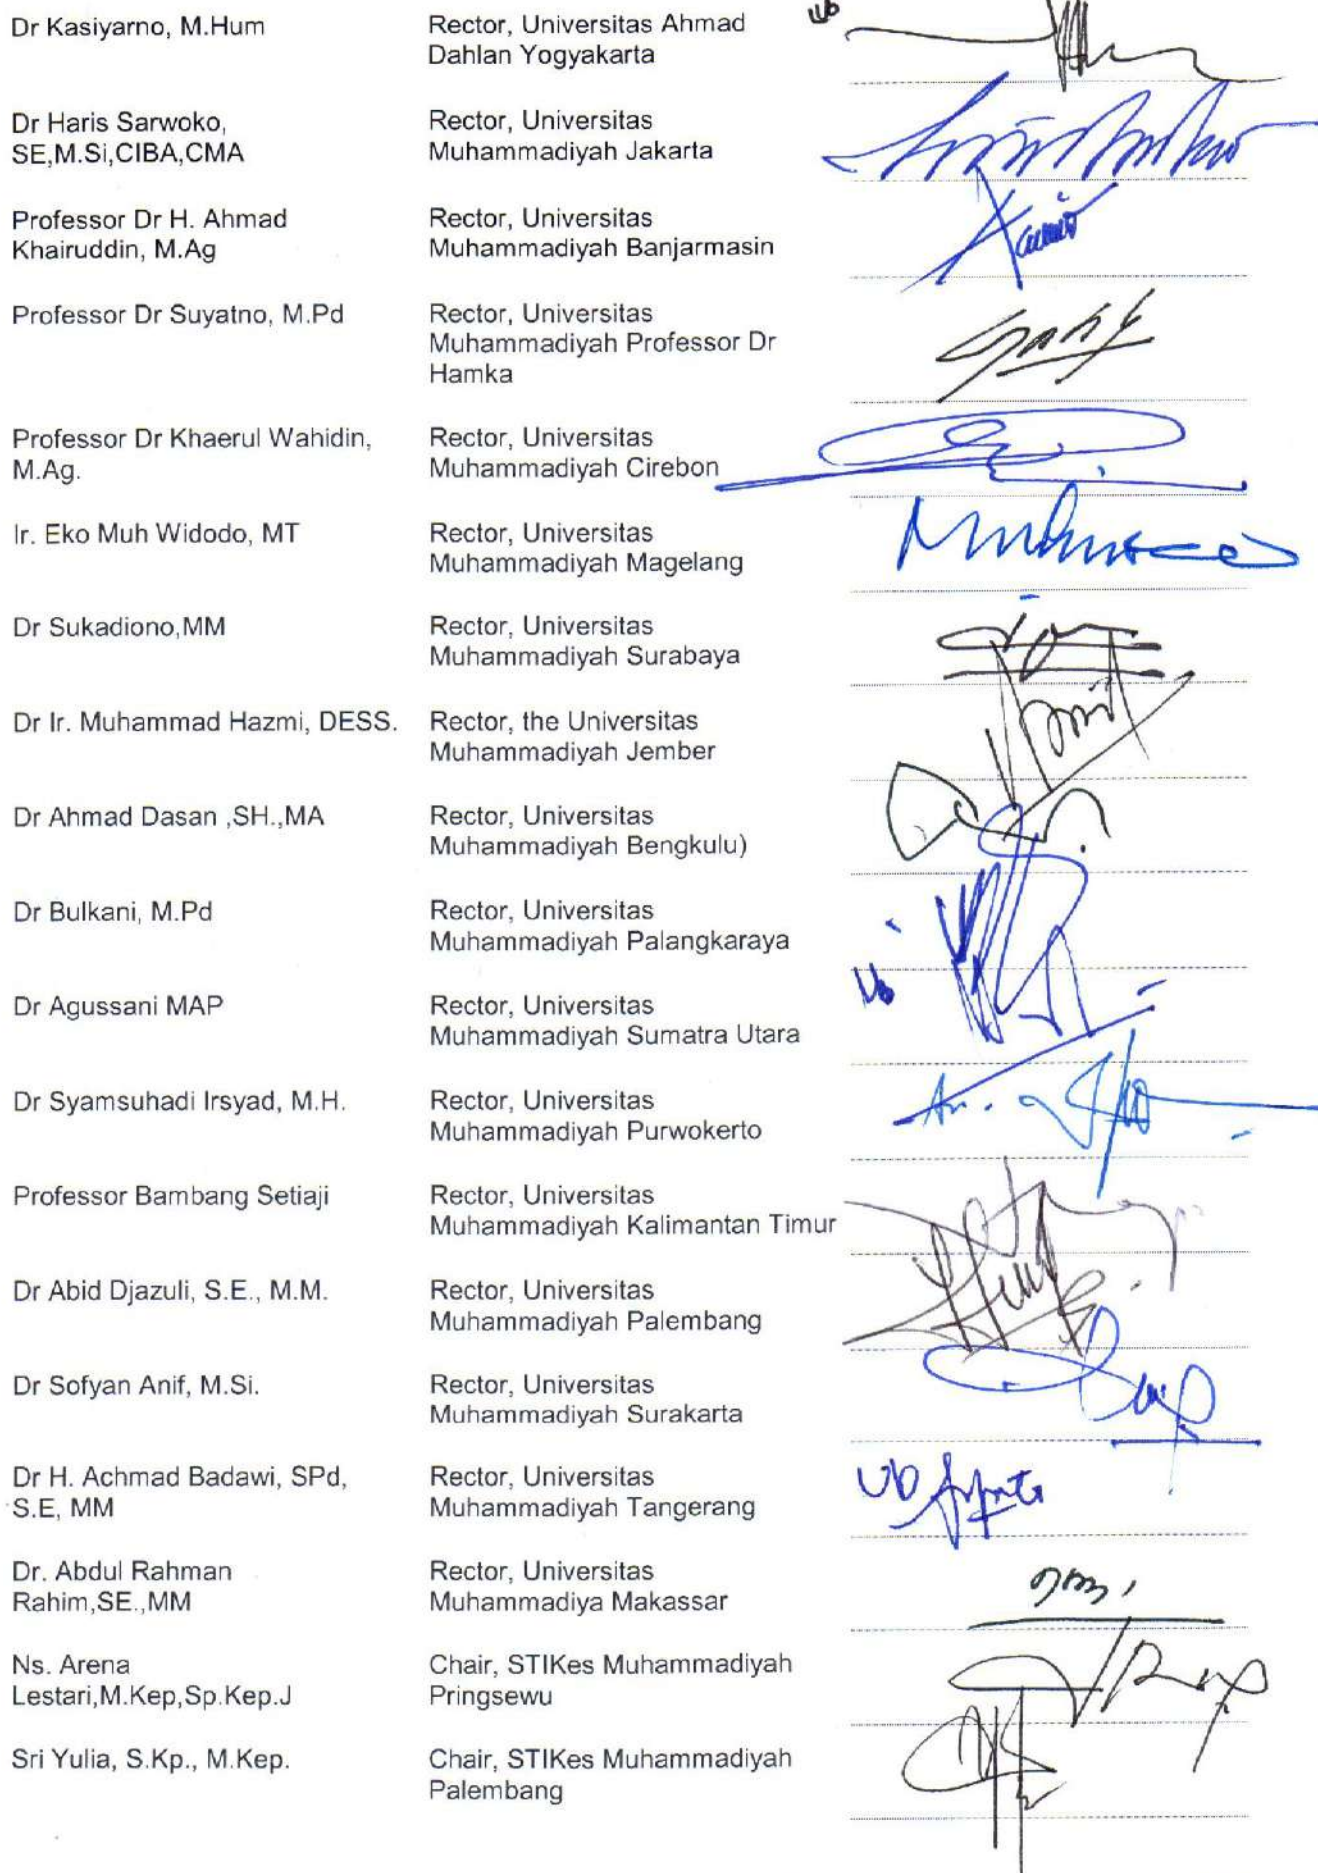 Dr Kasiyarno, M.Hum
Rector, Universitas Ahmad
Dahlan Yogyakarta
Dr Haris Sarwoko,
SE,M.Si,CIBA,CMA
Rector, Universitas
Muhammadiyah Jakarta
Professor Dr H. Ahmad
Khairuddin, M.Ag
Rector, Universitas
Muhammadiyah Banjarmasin
Professor Dr Suyatno, M.Pd
Rector, Universitas
Muhammadiyah Professor Dr
Hamka
Professor Dr Khaerul Wahidin,
M.Ag.
Rector, Universitas
Muhammadiyah Cirebon
Ir. Eko Muh Widodo, MT
Rector, Universitas
Muhammadiyah Magelang
Dr Sukadiono,MM
Rector, Universitas
Muhammadiyah Surabaya
Dr Ir. Muhammad Hazmi, DESS.
Rector, the Universitas
Muhammadiyah Jember
Dr Ahmad Dasan ,SH.,MA
Rector, Universitas
Muhammadiyah Bengkulu)
Dr Bulkani, M.Pd
Rector, Universitas
Muhammadiyah Palangkaraya
Dr Agussani MAP
Rector, Universitas
Muhammadiyah Sumatra Utara
Dr Syamsuhadi Irsyad, M.H.
Rector, Universitas
Muhammadiyah Purwokerto
Professor Bambang Setiaji
Rector, Universitas
Muhammadiyah Kalimantan Timur
Dr Abid Djazuli, S.E., M.M.
Rector, Universitas
Muhammadiyah Palembang
Dr Sofyan Anif, M.Si.
Rector, Universitas
Muhammadiyah Surakarta
Dr H. Achmad Badawi, SPd,
S.E, MM
Rector, Universitas
Muhammadiyah Tangerang
Dr. Abdul Rahman
Rahim,SE.,MM
Rector, Universitas
Muhammadiya Makassar
Ns. Arena
Lestari,M.Kep,Sp.Kep.J
Chair, STIKes Muhammadiyah
Pringsewu
Sri Yulia, S.Kp., M.Kep.
Chair, STIKes Muhammadiyah
Palembang